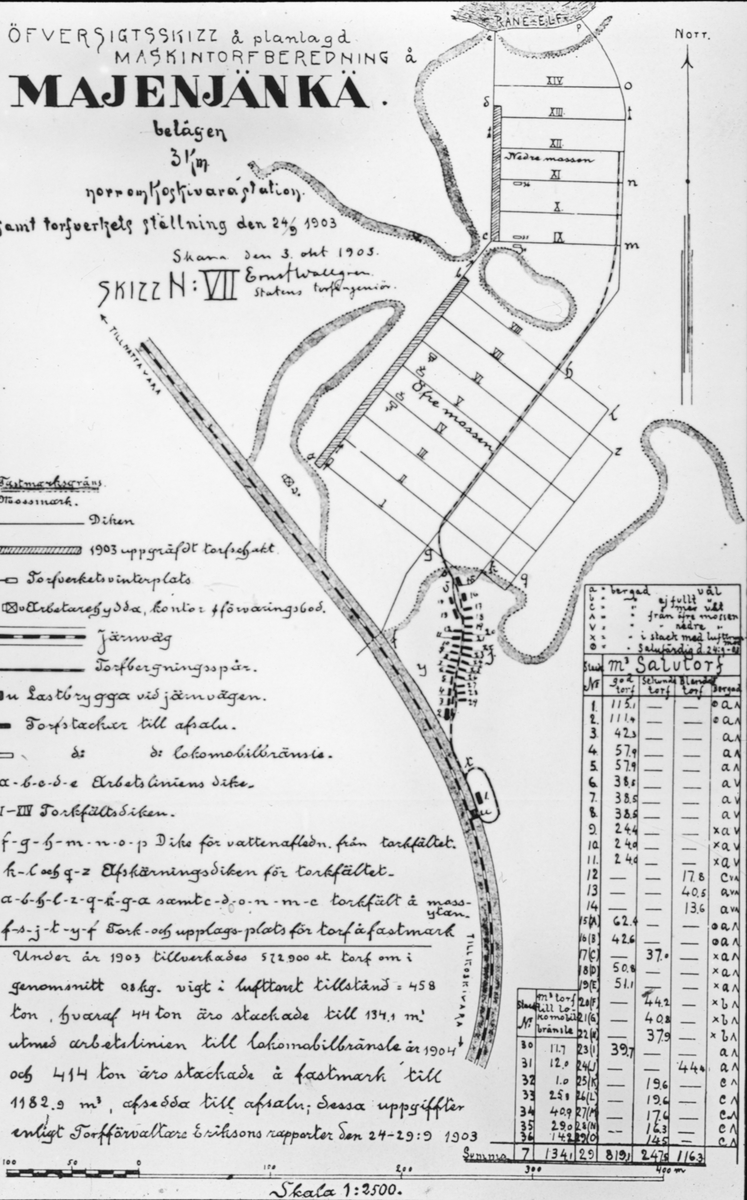 RÅNE-ELF
ÖFVERSIGTSSKIZZ å planlagd
MASKINTORFBEREDNING å
MAJENJÄNKÄ.
belägen
3 Km
norr om Koskivara station.
samt torfverkets ställning den 24/9 1903
Skara den 3. okt 1903.
SKIZZ N: VII Ernst Wallgren.
Statens torfingeniör.
NOTT.
XIV
XIII
XII
Nedre mossen
XI
X
IX
VIII
VII
VI
V
Öfre mossen
IV
III
II
I
TILL NATTAVARA
TILL KOSKIVARA
Fastmarksgräns.
Mossmark.
Diken
1903 uppgräfdt torfschakt.
Torfverkets vinterplats.
v Arbetarehydda, kontor & förvaringsbod.
Järnväg
Torfbergningsspår.
u Lastbrygga vid järnvägen.
Torfstackar till afsalu.
d: d: lokomobilbränsle.
a-b-c-d-e Arbetsliniens dike.
I-XIV Torkfältsdiken.
f-g-h-m-n-o-p Dike för vattenafledn. från torkfältet.
k-l och q-z Afskärningsdiken för torkfältet.
a-b-h-l-z-q-k-g-a samt c-d-o-n-m-c torkfält å moss-
ytan.
f-s-j-t-y-f Tork- och upplags-plats för torf å fastmark
Under år 1903 tillverkades 572900 st. torf om i
genomsnitt 0.8 kg. vigt i lufttort tillstånd = 458
ton, hvaraf 44 ton äro stackade till 134,1 m³
utmed arbetslinien till lokomobilbränsle år 1904
och 414 ton äro stackade å fastmark till
1182.9 m³, afsedda till afsalu; dessa uppgiffter
enligt Torfförvaltare Eriksons rapporter den 24-29:9 1903
a = bergad väl
b " " ej fullt "
c " " mer våt
ʌ " " från öfre mossen
v " " " nedre "
x " " i stack med lufttrum
Salufärdig d. 24:9-03
Stack № m³ Salutorf
god torf Sekunda torf Blandad torf Bergad
1. 115,1 — — a ʌ
2. 111,4 — — a ʌ
3. 42,3 — — a ʌ
4. 57,9 — — a ʌ
5. 57,9 — — a ʌ
6. 38,5 — — a v
7. 38,5 — — a v
8. 38,5 — — a v
9. 24,4 — — x a v
10. 24,0 — — x a v
11. 24,0 — — x a v
12 — — 17.8 c v ʌ
13 — — 40,5 a v ʌ
14 — — 13,6 a v ʌ
15(A) 62.4 — — a ʌ
16(B) 42.6 — — a ʌ
17(C) — 37.0 — x a ʌ
18(D) 50.8 — — x a ʌ
19(E) 51.1 — — x a ʌ
20(F) — 44.2 — x b ʌ
21(G) — 40.8 — x b ʌ
22(H) — 37,9 — x b ʌ
23(I) 39,7 — — a ʌ
24(J) — — 44,4 a ʌ
25(K) — 19,6 — c ʌ
26(L) — 19,6 — c ʌ
27(M) — 17,6 — c ʌ
28(N) — 16,3 — c ʌ
29(O) — 14,5 — c ʌ
29 819,1 247,5 116,3
Stack № m³ torf till lokomobilbränsle
30 11.7
31 12.0
32 1.0
33 25.8
34 40.9
35 29.0
36 14.2
Summa 7 134,1
100 50 0 100 200 300 400 m
Skala 1:2500.